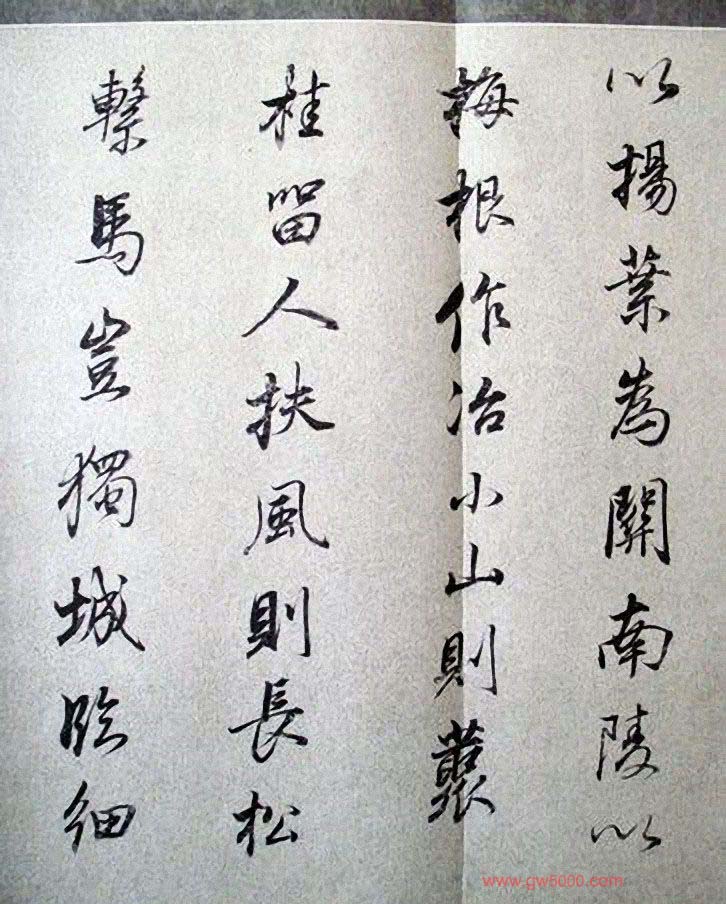 以楊葉為關南陵以
梅根作冶小山則叢
桂留人扶風則長松
繫馬豈獨城臨細
www.gw5000.com